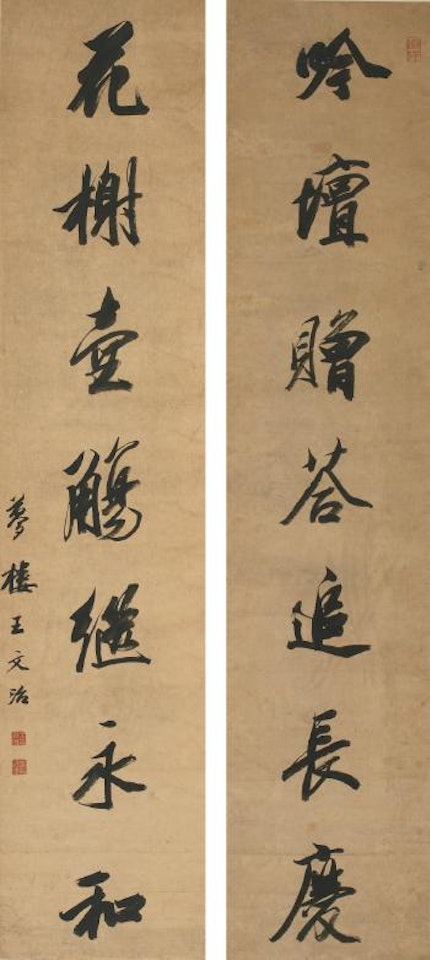 吟壇贈荅追長慶
花榭壺觴繼永和
夢樓王文治